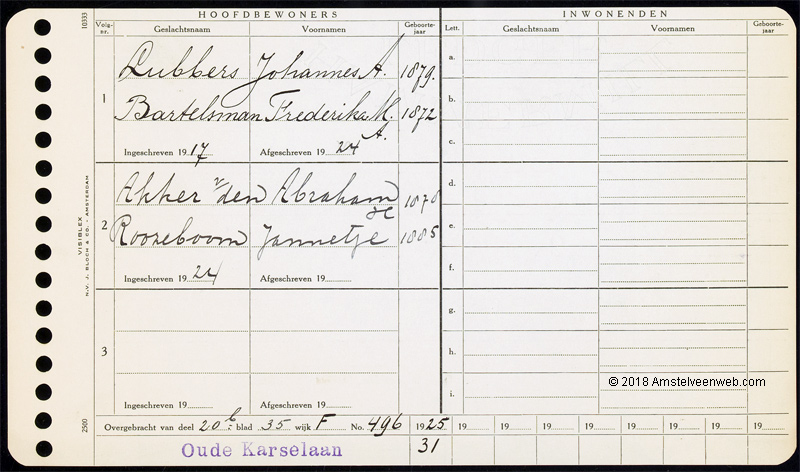 HOOFDBEWONERS
INWONENDEN
Volg-nr. Geslachtsnaam Voornamen Geboorte-jaar Lett. Geslachtsnaam Voornamen Geboorte-jaar
10333
1 Lubbers Johannes A. 1879.
Bartelsman Frederika M. A. 1872
Ingeschreven 1917 Afgeschreven 1924
2 Akker v/den Abraham 1878
Roozeboom Jannetje 1885
Ingeschreven 1924 Afgeschreven 19
3
Ingeschreven 19 Afgeschreven 19
a.
b.
c.
d.
e.
f.
g.
h.
i.
VISIBLEX
N.V. J. BLOCH & CO. - AMSTERDAM
2500
© 2018 Amstelveenweb.com
Overgebracht van deel 20 b blad 35 wijk F No. 496 1925 19 19 19 19 19 19 19 19
Oude Karselaan 31